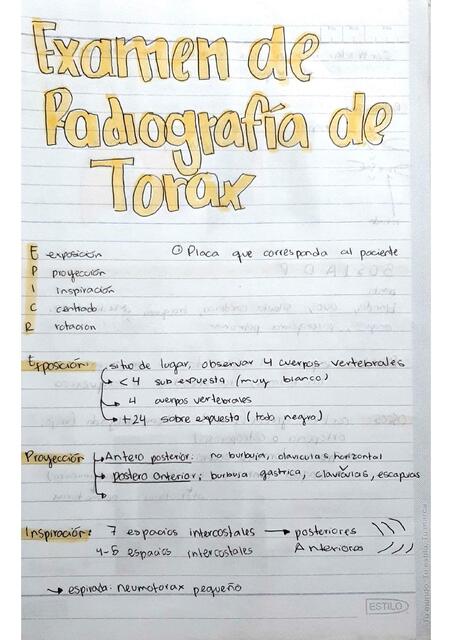 Examen de
Radiografía de
Torax
E exposición ① Placa que corresponda al paciente
P proyección
I inspiración
C centrado
R rotacion
Exposición sitio de lugar, observar 4 cuerpos vertebrales
<4 sub expuesta (muy blanco)
4 cuerpos vertebrales
+24 sobre expuesta (todo negro)
Proyección Antero posterior: no burbuja, claviculas horizontal
postero anterior; burbuja gastrica, claviculas, escapulas
Inspiración: 7 espacios intercostales → posteriores
4-5 espacios intercostales Anteriores
→ espirada: neumotorax pequeño
ESTILO
Tu mundo. Tu estilo. Tu marca.